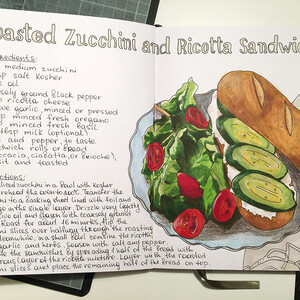 oasted Zucchini and Ricotta Sandwi
gredients:
medium zucchini
p salt kosher
oil
sely ground Black pepper
p ricotta cheese
ove garlic, minced or pressed
p minced fresh oregano
minced fresh basil
tbsp milk (optional)
and pepper, to taste
dwich rolls or bread
ccacia, ciabatta, or brioche),
and toasted
ctions:
sliced zucchini in a bowl with kosher
Transfer the
to a baking sheet lined with foil and
in the single layer. Drizzle very lightly
oil and season with coarsely ground
for about 15 minutes, flip the
slices over halfway through the roasting
Meanwhile, in a small bowl combine the ricotta,
garlic and herbs. Season with salt and pepper.
the sandwiches by spreading half of the bread with
layer of the ricotta mixture. Layer with the roasted
ni slices and place the remaining half of the bread on top.